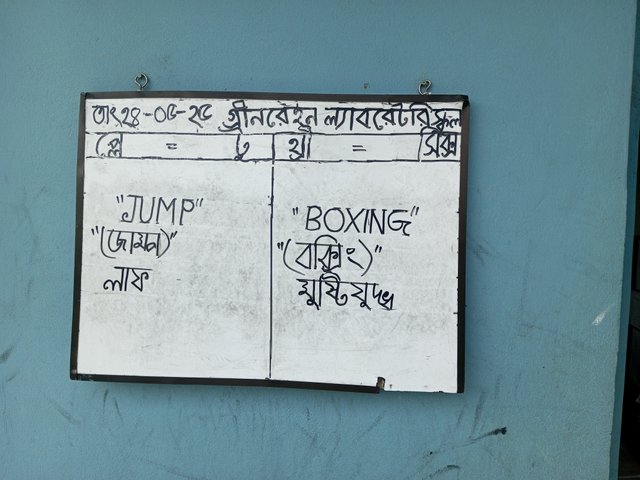 তাং২৪-০৫-২৫ গ্রীনরেইন ল্যাবরেটরি স্কুল
প্লে = টু থ্রী = সিক্স
"JUMP"
"(জাম্প)"
লাফ
"BOXING"
"(বক্সিং)"
মুষ্টিযুদ্ধ